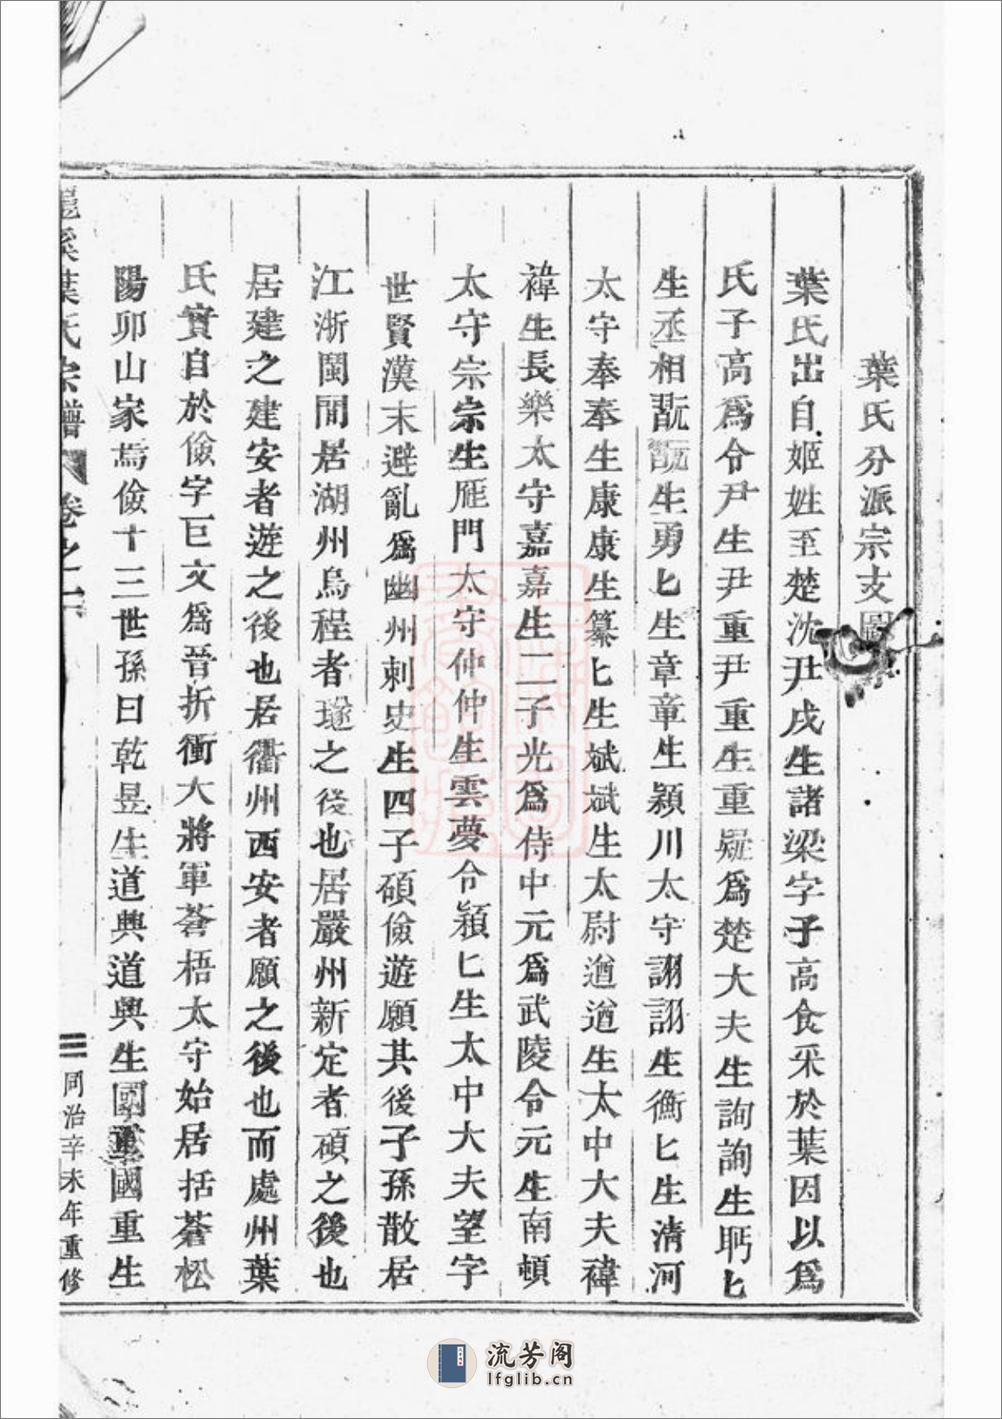 葉氏分派宗支圖
葉氏出自姬姓至楚沈尹戌生諸梁字子高食采於葉因以爲
氏子高爲令尹生尹重尹重生重疑爲楚大夫生詢詢生眄匕
生丞相翫翫生勇匕生章章生潁川太守詡詡生衡匕生淸河
太守奉奉生康康生纂匕生斌斌生太尉遒遒生太中大夫禕
禕生長樂太守嘉嘉生二子光爲侍中元爲武陵令元生南頓
太守宗宗生雁門太守仲仲生雲夢令潁匕生太中大夫望字
世賢漢末避亂爲幽州刺史生四子碩儉遊願其後子孫散居
江浙閩間居湖州烏程者瑑之後也居嚴州新定者碩之後也
居建之建安者遊之後也居衢州西安者願之後也而處州葉
氏實自於儉字巨文爲晉折衝大將軍蒼梧太守始居括蒼松
陽卯山家焉儉十三世孫曰乾昱生道興道興生國重國重生
溪葉氏宗譜 卷之一 同治辛未年重修
流芳阁
lfglib.cn